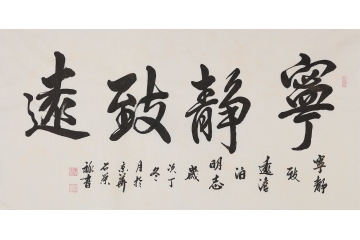 寧靜致遠
寧靜
致
遠澹
泊
明志
歲
次丁
冬
月於
京華
石英